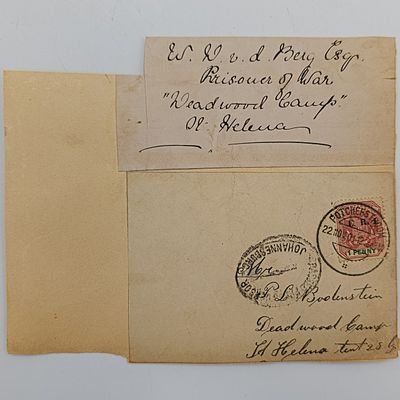 W. V. v. d. Berg Esq.
Prisoner of War
"Deadwood Camp"
St. Helena
POTCHEFSTROOM
E. R. I.
22 NO 01
1 PENNY
JOHANNESBURG
Mr.
P. L. Bodenstein
Deadwood Camp
St Helena tent 28